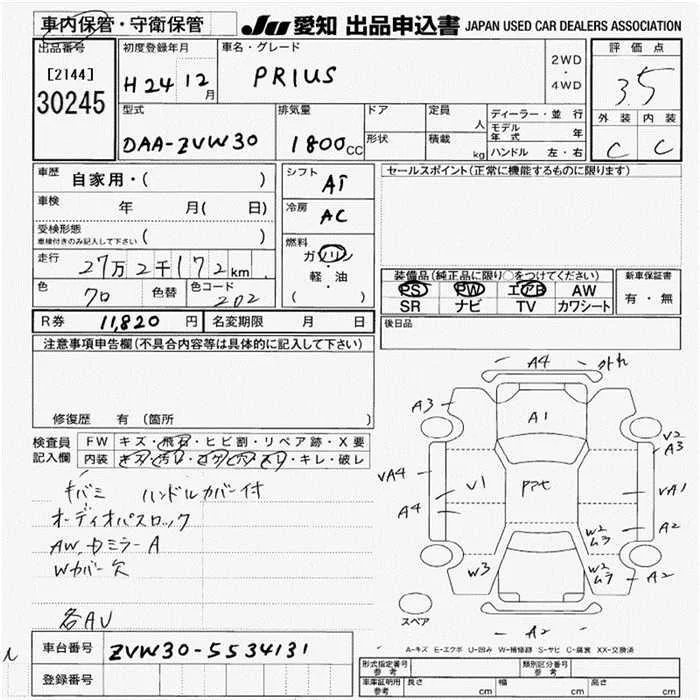 車内保管・守衛保管
JU 愛知 出品申込書 JAPAN USED CAR DEALERS ASSOCIATION
出品番号
[2144]
30245
初度登録年月
H24 12月
車名・グレード
PRIUS
2WD
・
4WD
評価点
3.5
外装 内装
C C
型式
DAA-ZVW30
排気量
1800cc
ドア
形状
定員 人
積載 kg
ディーラー・並行
モデル年式 年
ハンドル 左・右
車歴 自家用・( )
車検 年 月( 日)
受検形態
車検付きのみ記入して下さい ( )
走行 27万2千172km
色 クロ 色替 色コード 202
シフト AT
冷房 AC
燃料
ガソリン
軽・油
( )
セールスポイント(正常に機能するものに限ります)
装備品(純正品に限り○をつけてください)
PS PW エアB AW
SR ナビ TV カワシート
新車保証書
有・無
R券 11,820円 名変期限 月 日
後日品
注意事項申告欄(不具合内容等は具体的に記入して下さい)
修復歴 有 (箇所 )
検査員記入欄
FW キズ・飛石・ヒビ割・リペア跡・X要
内装 キズ・汚レ・コゲ・穴・スレ・キレ・破レ
キバミ ハンドルカバー付
オーディオパスロック
AW,ドミラーA
Wカバー欠
各AU
A4 外れ
A3
A1
V2
A3
VA4
V1
PPt
VA1
A4
W2
ムラ
A2
W3
W2
ムラ
A2
スペア
A2
A-キズ E-エクボ U-凹み W-補修跡 S-サビ C-腐食 XX-交換済
車台番号 ZVW30-5534131
登録番号
形式指定番号 参考
類別区分番号 参考
車庫証明用 参考
長さ cm 幅 cm 高さ cm